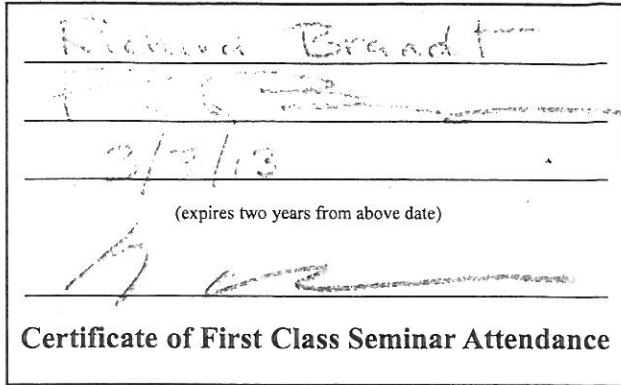 Richard Brandt
3/7/13
(expires two years from above date)
Certificate of First Class Seminar Attendance